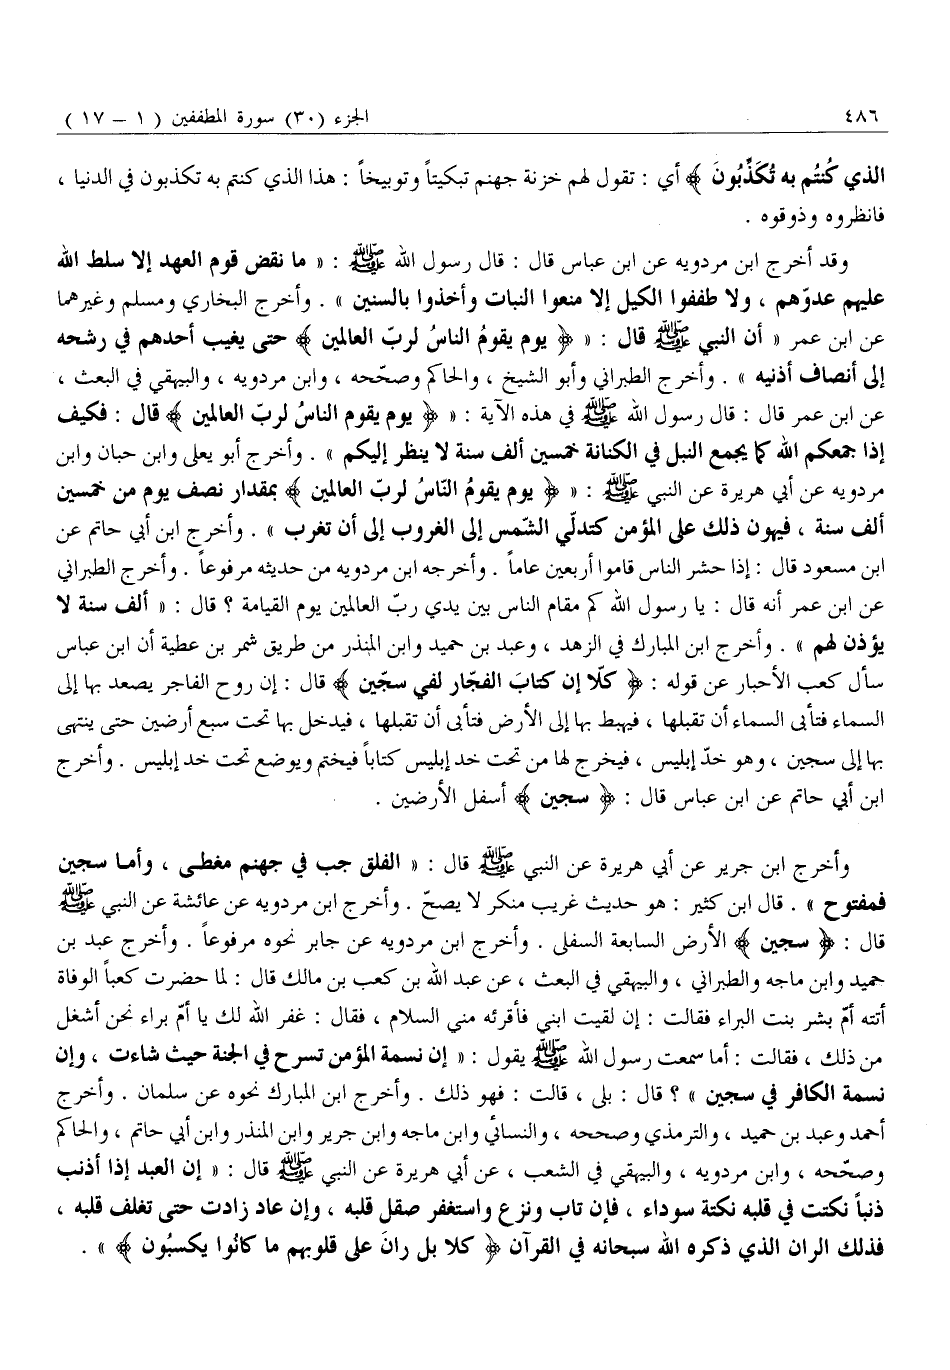 ٤٨٦
الجزء (٣٠) سورة المطففين ( ١ – ١٧ )
الذي كُنتُم به تُكَذِّبُونَ ﴾ أي : تقول لهم خزنة جهنم تبكيتاً وتوبيخاً : هذا الذي كنتم به تكذبون في الدنيا ،
فانظروه وذوقوه .
وقد أخرج ابن مردويه عن ابن عباس قال : قال رسول الله ﷺ : « ما نقض قوم العهد إلا سلط الله
عليهم عدوّهم ، ولا طففوا الكيل إلا منعوا النبات وأخذوا بالسنين » . وأخرج البخاري ومسلم وغيرهما
عن ابن عمر « أن النبي ﷺ قال : « ﴿ يوم يقومُ الناسُ لربّ العالمين ﴾ حتى يغيب أحدهم في رشحه
إلى أنصاف أذنيه » . وأخرج الطبراني وأبو الشيخ ، والحاكم وصحّحه ، وابن مردويه ، والبيهقي في البعث ،
عن ابن عمر قال : قال رسول الله ﷺ في هذه الآية : « ﴿ يوم يقوم الناسُ لربّ العالمين ﴾ قال : فكيف
إذا جمعكم الله كما يجمع النبل في الكنانة خمسين ألف سنة لا ينظر إليكم » . وأخرج أبو يعلى وابن حبان وابن
مردويه عن أبي هريرة عن النبي ﷺ : « ﴿ يوم يقومُ النّاسُ لربّ العالمين ﴾ بمقدار نصف يوم من خمسين
ألف سنة ، فيهون ذلك على المؤمن كتدلّي الشّمس إلى الغروب إلى أن تغرب » . وأخرج ابن أبي حاتم عن
ابن مسعود قال : إذا حشر الناس قاموا أربعين عاماً . وأخرجه ابن مردويه من حديثه مرفوعاً . وأخرج الطبراني
عن ابن عمر أنه قال : يا رسول الله كم مقام الناس بين يدي ربّ العالمين يوم القيامة ؟ قال : « ألف سنة لا
يؤذن لهم » . وأخرج ابن المبارك في الزهد ، وعبد بن حميد وابن المنذر من طريق شمر بن عطية أن ابن عباس
سأل كعب الأحبار عن قوله : ﴿ كلّا إن كتابَ الفجّار لفي سجّين ﴾ قال : إن روح الفاجر يصعد بها إلى
السماء فتأبى السماء أن تقبلها ، فيهبط بها إلى الأرض فتأبى أن تقبلها ، فيدخل بها تحت سبع أرضين حتى ينتهى
بها إلى سجين ، وهو خدّ إبليس ، فيخرج لها من تحت خد إبليس كتاباً فيختم ويوضع تحت خد إبليس . وأخرج
ابن أبي حاتم عن ابن عباس قال : ﴿ سجين ﴾ أسفل الأرضين .
وأخرج ابن جرير عن أبي هريرة عن النبي ﷺ قال : « الفلق جب في جهنم مغطى ، وأما سجين
فمفتوح » . قال ابن كثير : هو حديث غريب منكر لا يصحّ . وأخرج ابن مردويه عن عائشة عن النبي ﷺ
قال : ﴿ سجين ﴾ الأرض السابعة السفلى . وأخرج ابن مردويه عن جابر نحوه مرفوعاً . وأخرج عبد بن
حميد وابن ماجه والطبراني ، والبيهقي في البعث ، عن عبد الله بن كعب بن مالك قال : لما حضرت كعباً الوفاة
أتته أمّ بشر بنت البراء فقالت : إن لقيت ابني فأقرئه مني السلام ، فقال : غفر الله لك يا أمّ براء نحن أشغل
من ذلك ، فقالت : أما سمعت رسول الله ﷺ يقول : « إن نسمة المؤمن تسرح في الجنة حيث شاءت ، وإن
نسمة الكافر في سجين » ؟ قال : بلى ، قالت : فهو ذلك . وأخرج ابن المبارك نحوه عن سلمان . وأخرج
أحمد وعبد بن حميد ، والترمذي وصححه ، والنسائي وابن ماجه وابن جرير وابن المنذر وابن أبي حاتم ، والحاكم
وصحّحه ، وابن مردويه ، والبيهقي في الشعب ، عن أبي هريرة عن النبي ﷺ قال : « إن العبد إذا أذنب
ذنباً نكتت في قلبه نكتة سوداء ، فإن تاب ونزع واستغفر صقل قلبه ، وإن عاد زادت حتى تغلف قلبه ،
فذلك الران الذي ذكره الله سبحانه في القرآن ﴿ كلا بل رانَ على قلوبهم ما كانُوا يكسبُون ﴾ » .